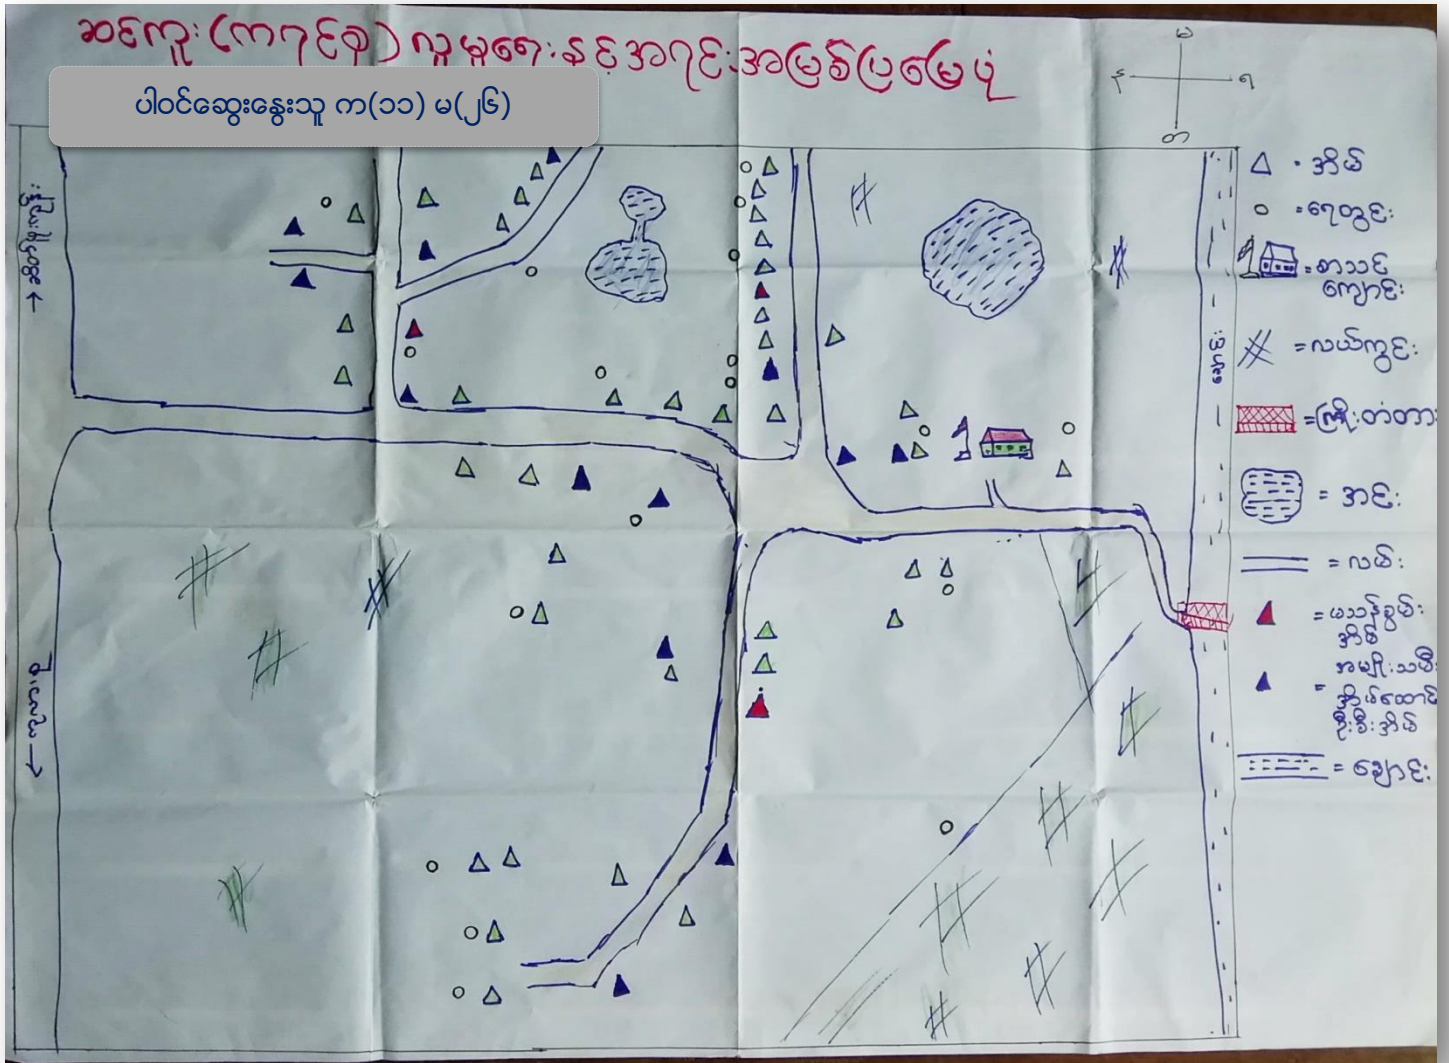 ဆင်ကူး(ကရင်စု) လူမှုရေးနှင့်အရင်းအမြစ်ပြမြေပုံ
ပါဝင်ဆွေးနွေးသူ က(၁၁) မ(၂၆)
မ
န
ရ
တ
= အိမ်
= ရေတွင်း
= စာသင်
ကျောင်း
= လယ်ကွင်း
= ကြိုးတံတား
= အင်း
= လမ်း
= မသန်စွမ်း
အိမ်
အမျိုးသမီး
= အိမ်ထောင်
ဦးစီးအိမ်
= ချောင်း